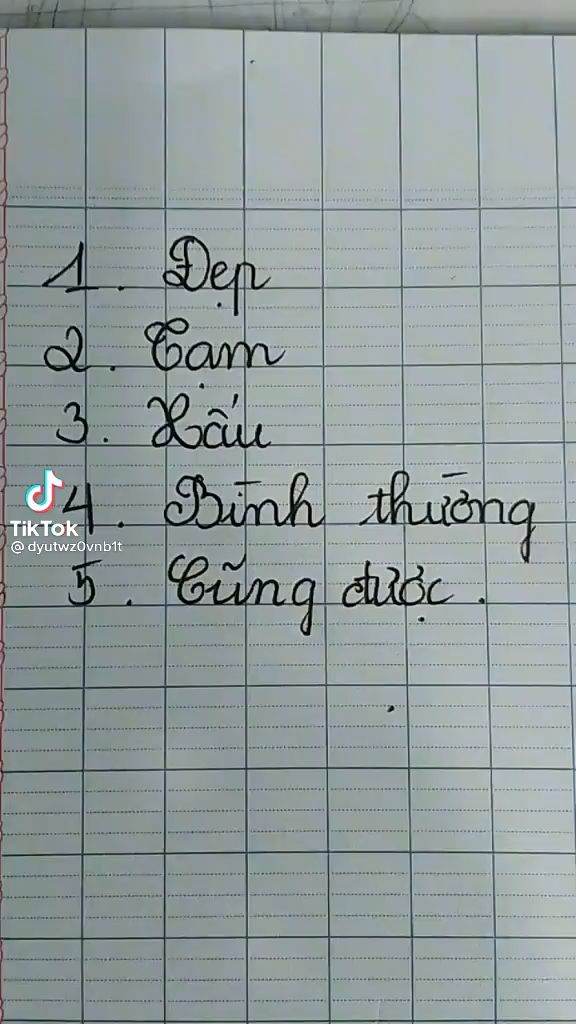 1. Đẹp
2. Tạm
3. Xấu
4. Bình thường
5. Cũng được.
TikTok
@dyutwz0vnb1t